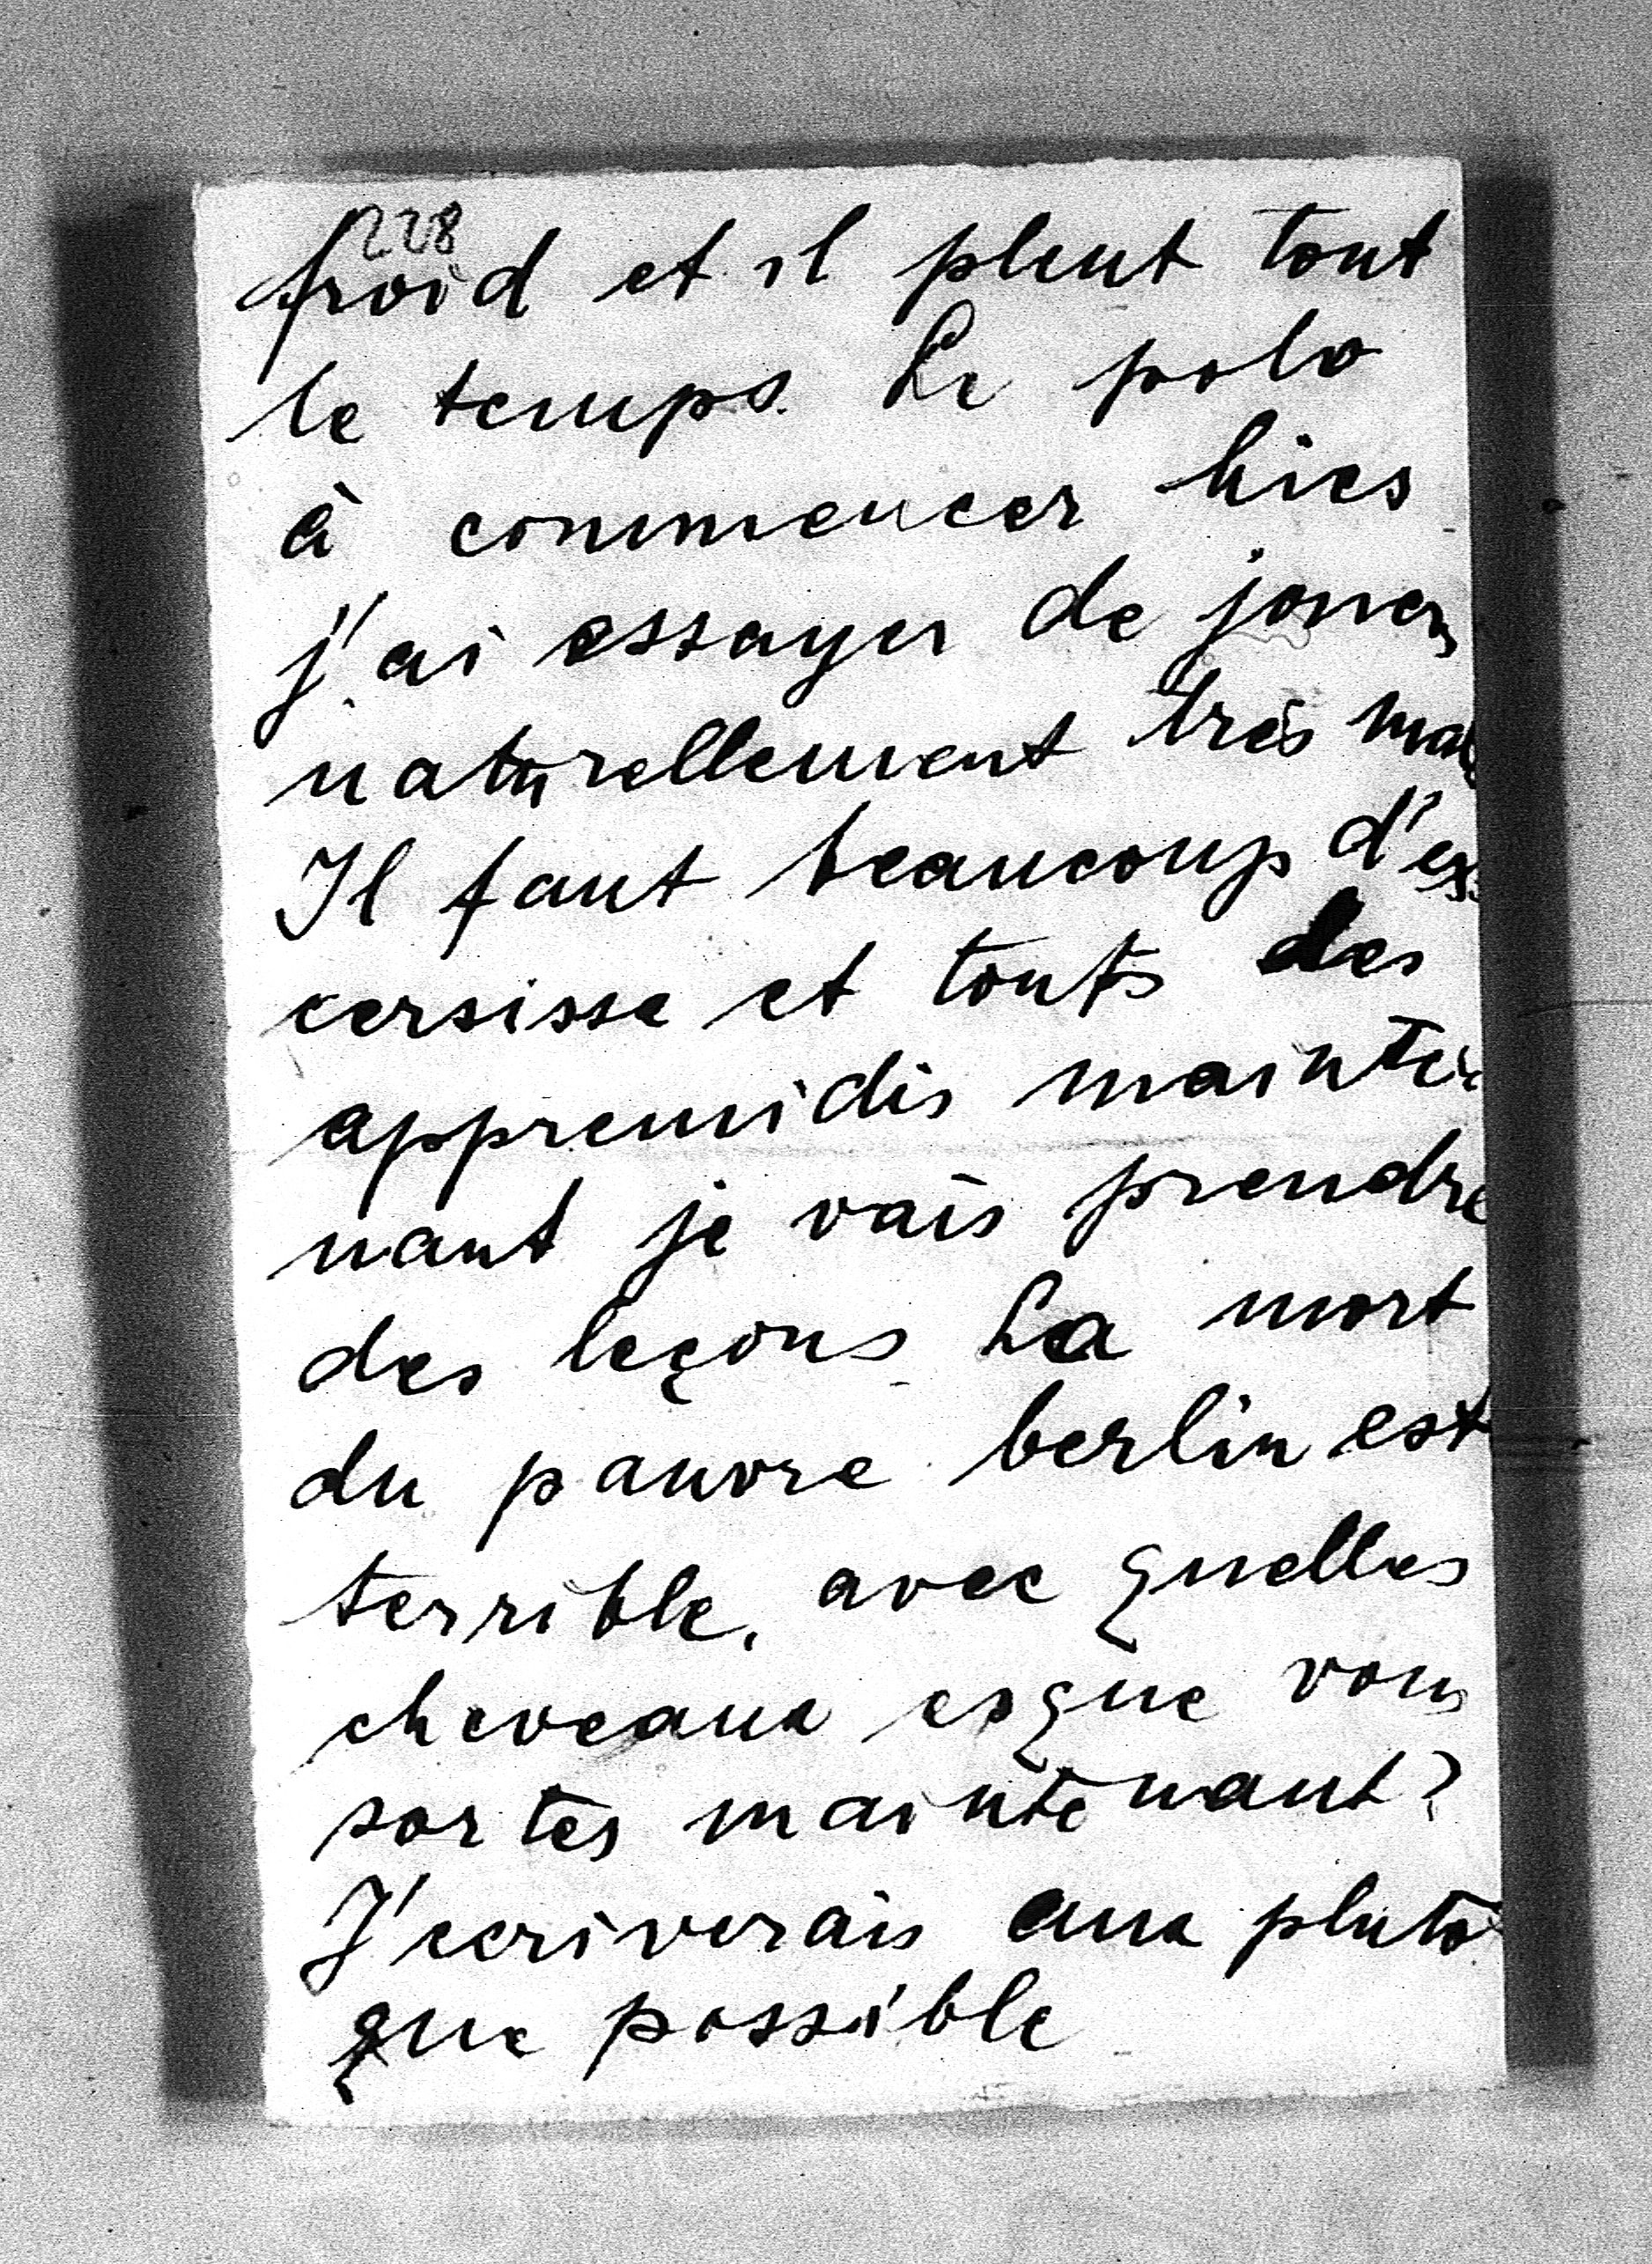 228
froid et il pleut tout
le temps. Le polo
à commencer hier
j'ai essayer de jouer
naturellement très mal
Il faut beaucoup d'ex
cersisse et touts des
appremidis mainte
nant je vais prendre
des leçons La mort
du pauvre berlin est
terrible, avec quelles
cheveaux esque vous
sortès maintenant?
J'ecriverais aux plutô
que possible